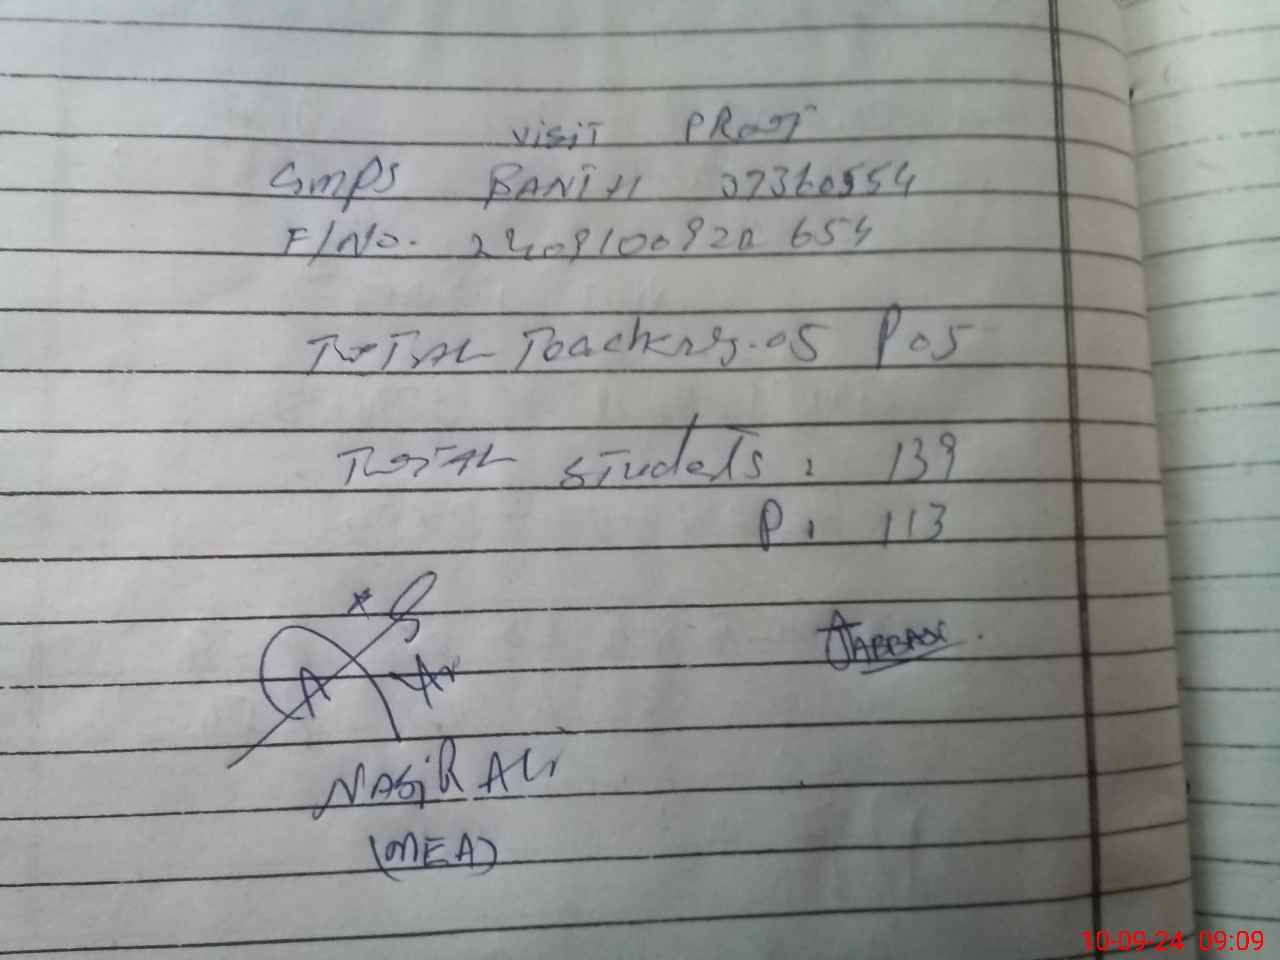 VISIT PROOF
GMPS BANTH 37360554
F/No. 240910092 654
TOTAL Teachers. 05 P 05
TOTAL Students : 139
P : 113
JABBAR.
NASIR ALI
(MEA)
10-09-24 09:09